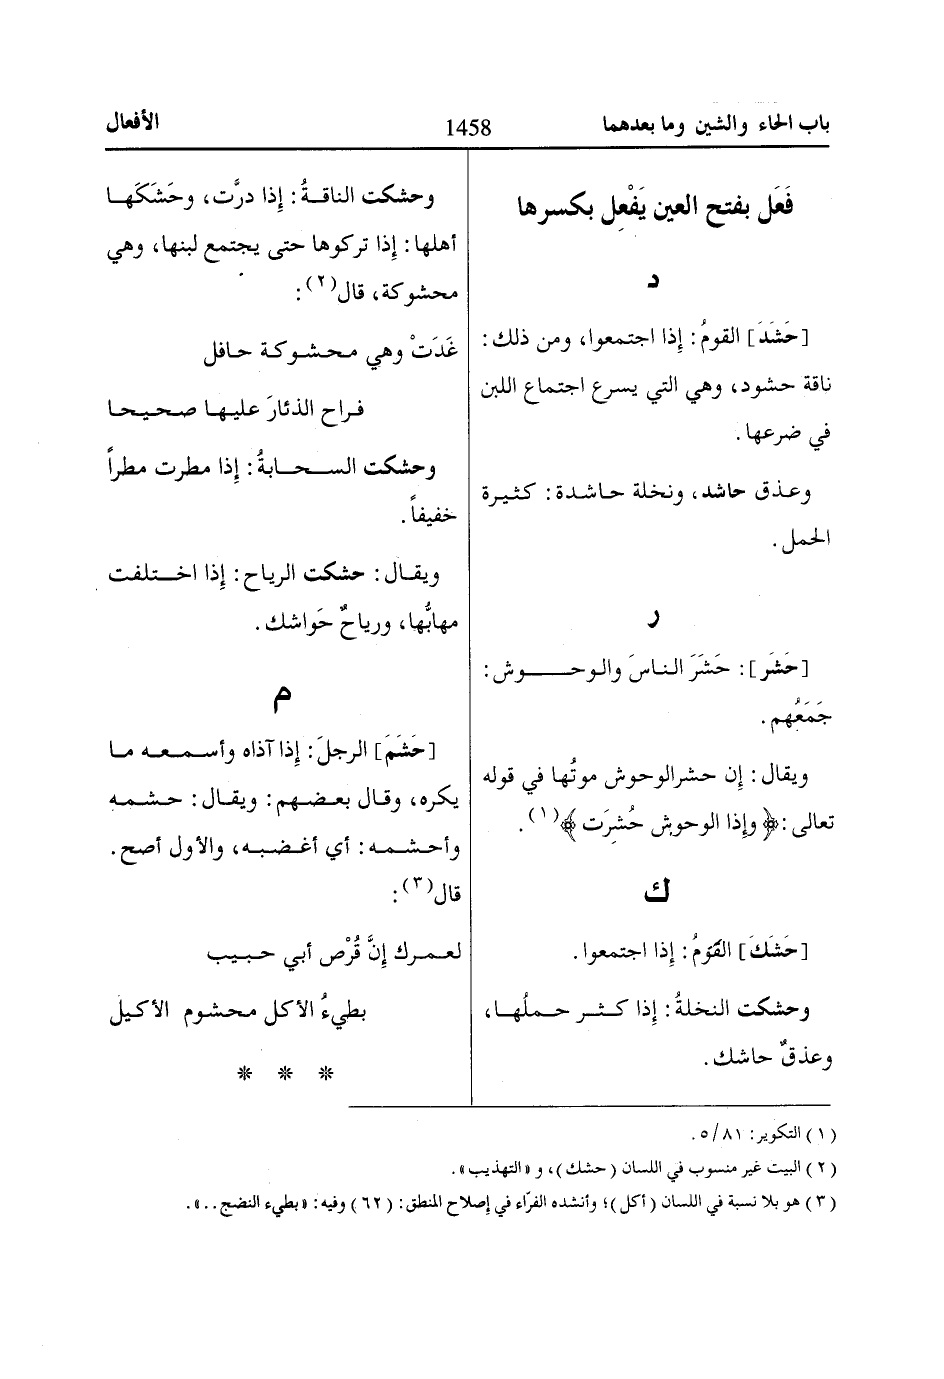 باب الحاء والشين وما بعدهما 1458 الأفعال
فَعَل بفتح العين يَفْعِل بكسرها
د
[حَشَدَ] القومُ: إذا اجتمعوا، ومن ذلك:
ناقة حشود، وهي التي يسرع اجتماع اللبن
في ضرعها.
وعذق حاشد، ونخلة حاشدة: كثيرة
الحمل.
ر
[حَشَر]: حَشَرَ الناسَ والوحوش:
جَمَعَهُم.
ويقال: إن حشر الوحوش موتُها في قوله
تعالى: ﴿وإذا الوحوش حُشِرَت﴾(١).
ك
[حَشَكَ] القَوَمُ: إذا اجتمعوا.
وحشكت النخلةُ: إذا كثر حملُها،
وعذقٌ حاشك.
وحشكت الناقةُ: إذا درَّت، وحَشَكَها
أهلها: إذا تركوها حتى يجتمع لبنها، وهي
محشوكة، قال(٢):
غَدَتْ وهي محشوكة حافل
فراح الذئارَ عليها صحيحا
وحشكت السحابةُ: إذا مطرت مطراً
خفيفاً.
ويقال: حشكت الرياح: إذا اختلفت
مهابُّها، ورياحٌ حَواشك.
م
[حَشَمَ] الرجلَ: إذا آذاه وأسمعه ما
يكره، وقال بعضهم: ويقال: حشمه
وأحشمه: أي أغضبه، والأول أصح.
قال(٣):
لعمرك إنَّ قُرْص أبي حبيب
بطيءُ الأكل محشوم الأكيل
* * *
(١) التكوير: ٥/٨١.
(٢) البيت غير منسوب في اللسان (حشك)، و«التهذيب».
(٣) هو بلا نسبة في اللسان (أكل)؛ وأنشده الفرّاء في إصلاح المنطق: (٦٢) وفيه: «بطيء النضج..».